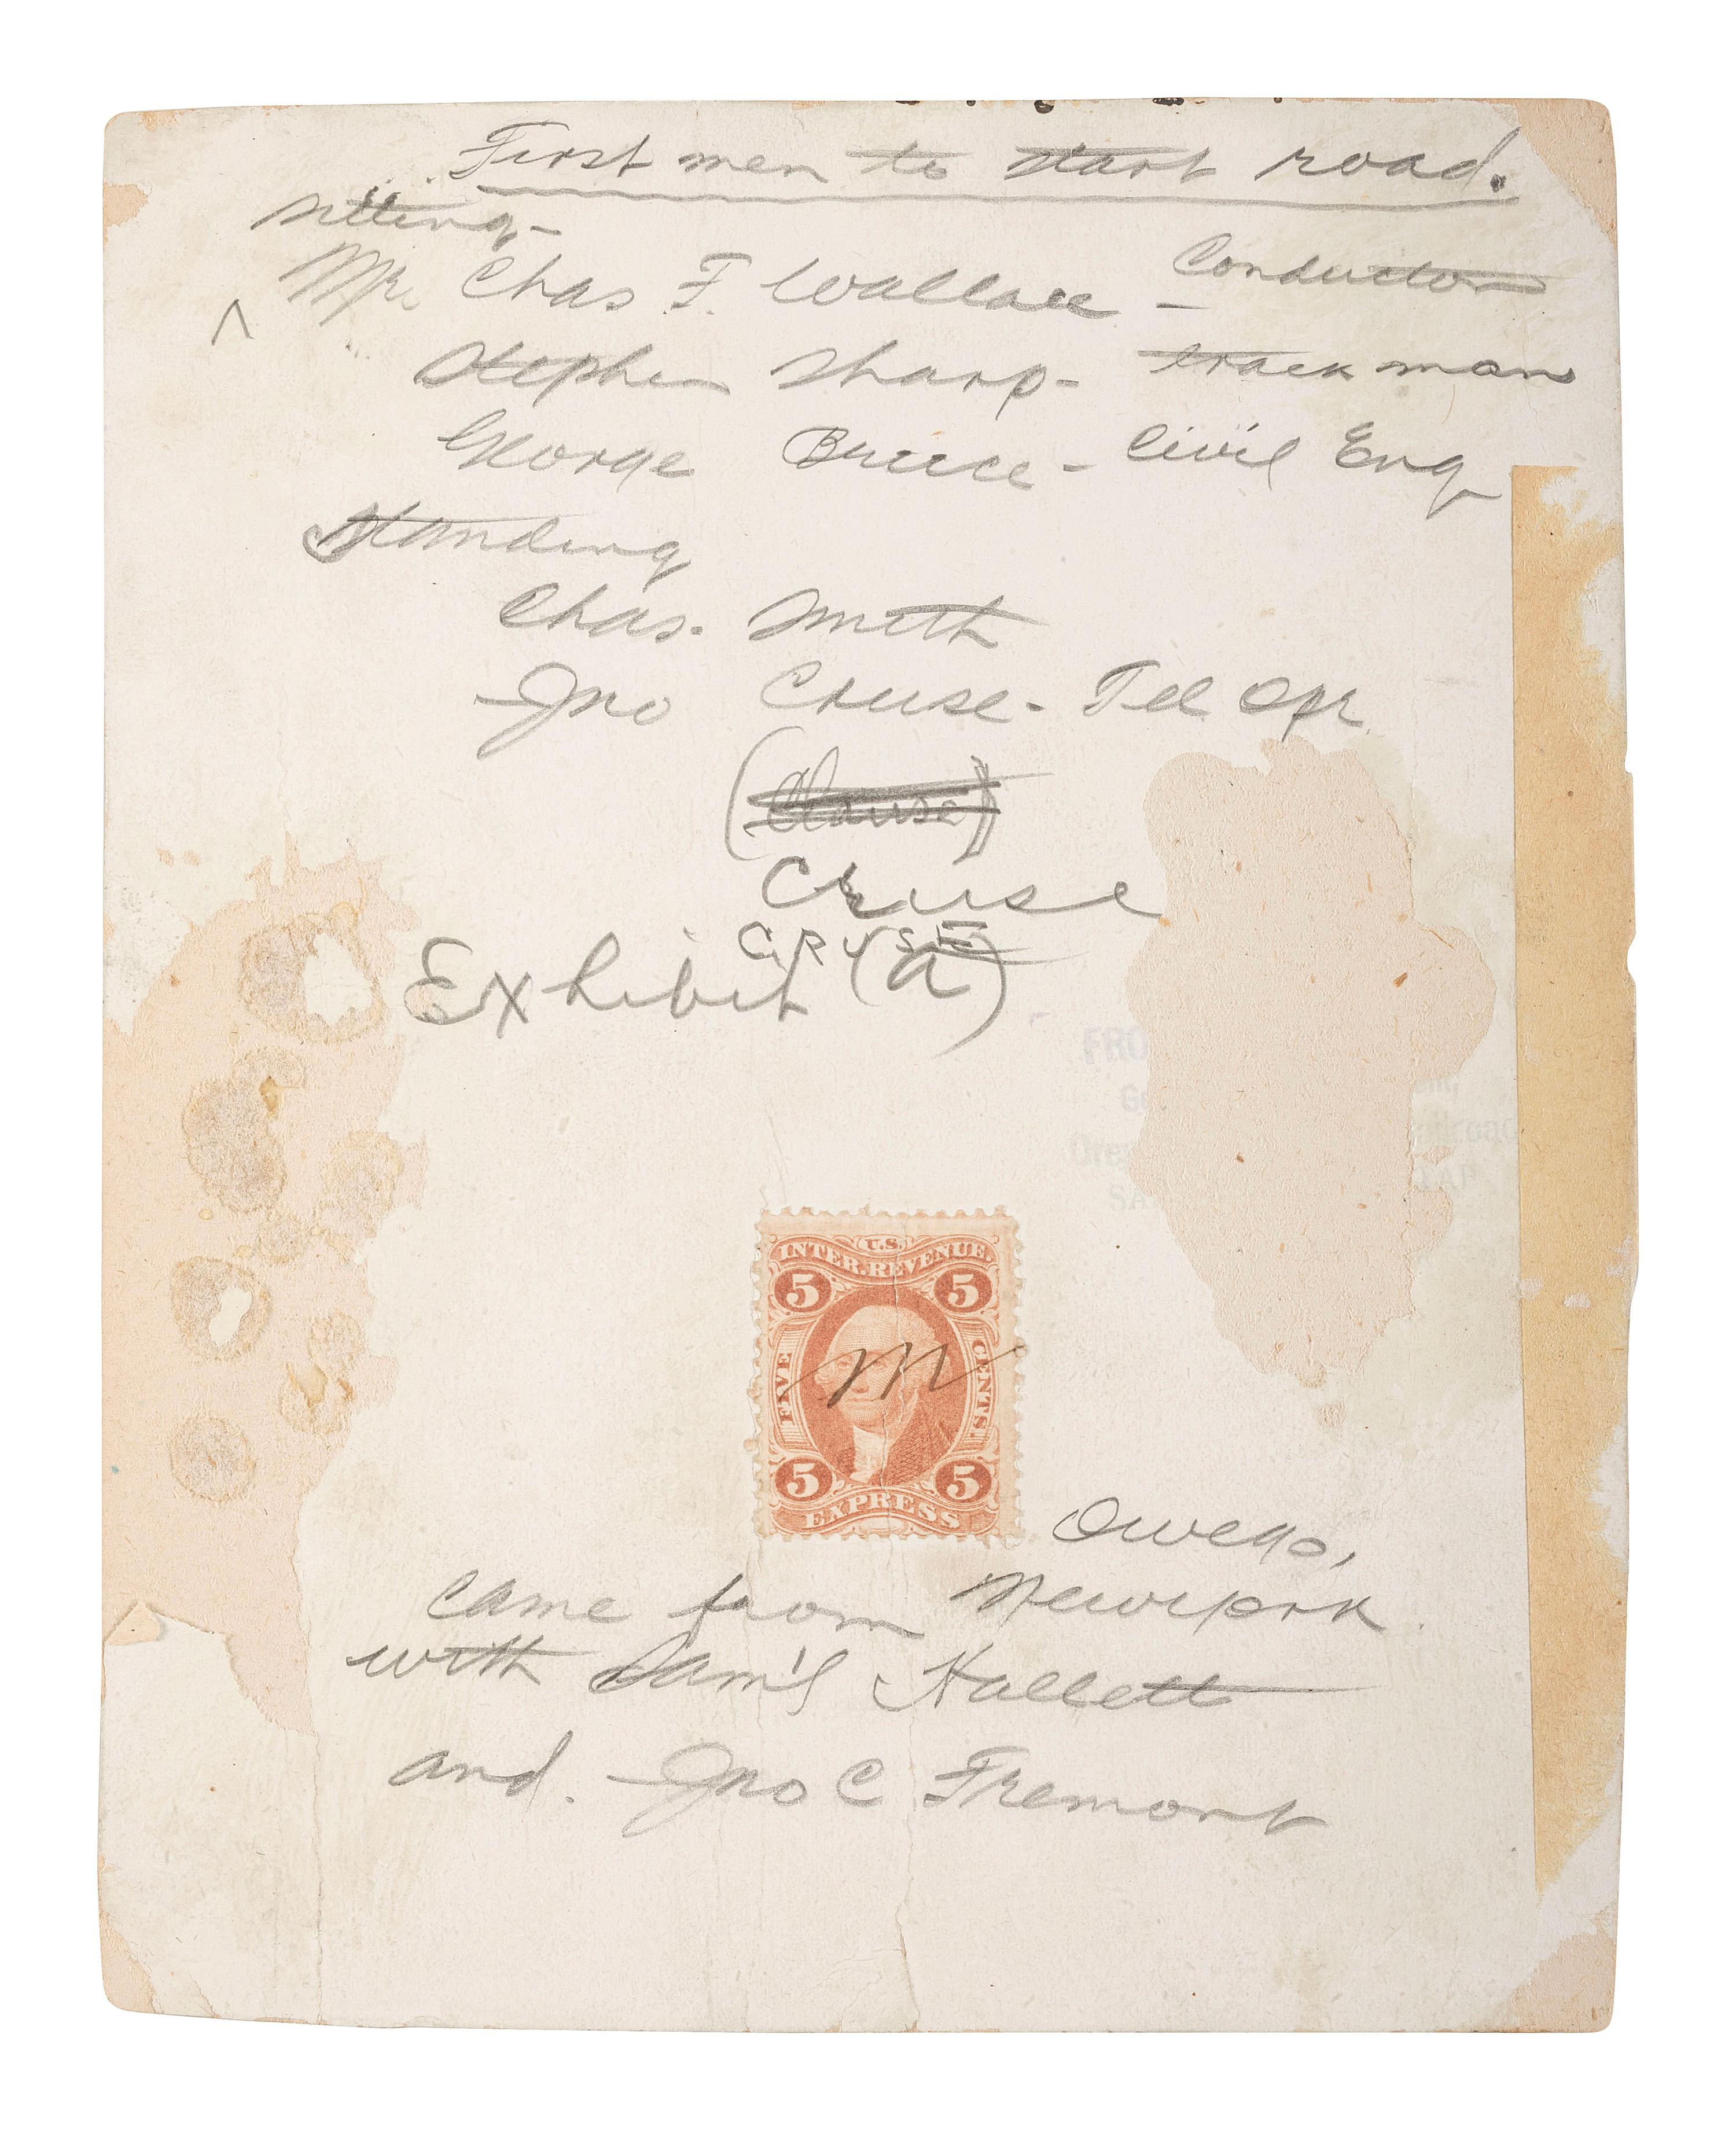 First men to start road.
sitting-
Mr. Chas F. Wallace - Conductor
^
Stephen Sharp- track man
George Bruce - Civil Eng
Standing
Chas. Smith
Jno Cruse - Tel Opr
Cruse
CRUSE
Exhibit (a)
FRO
Ge
Ore
SA
U.S.
INTER. REVENUE.
5 5
FIVE CENTS
m
5 5
EXPRESS
Owego,
came from Newyork
with Sam'l Hallett
and. Jno C Fremont